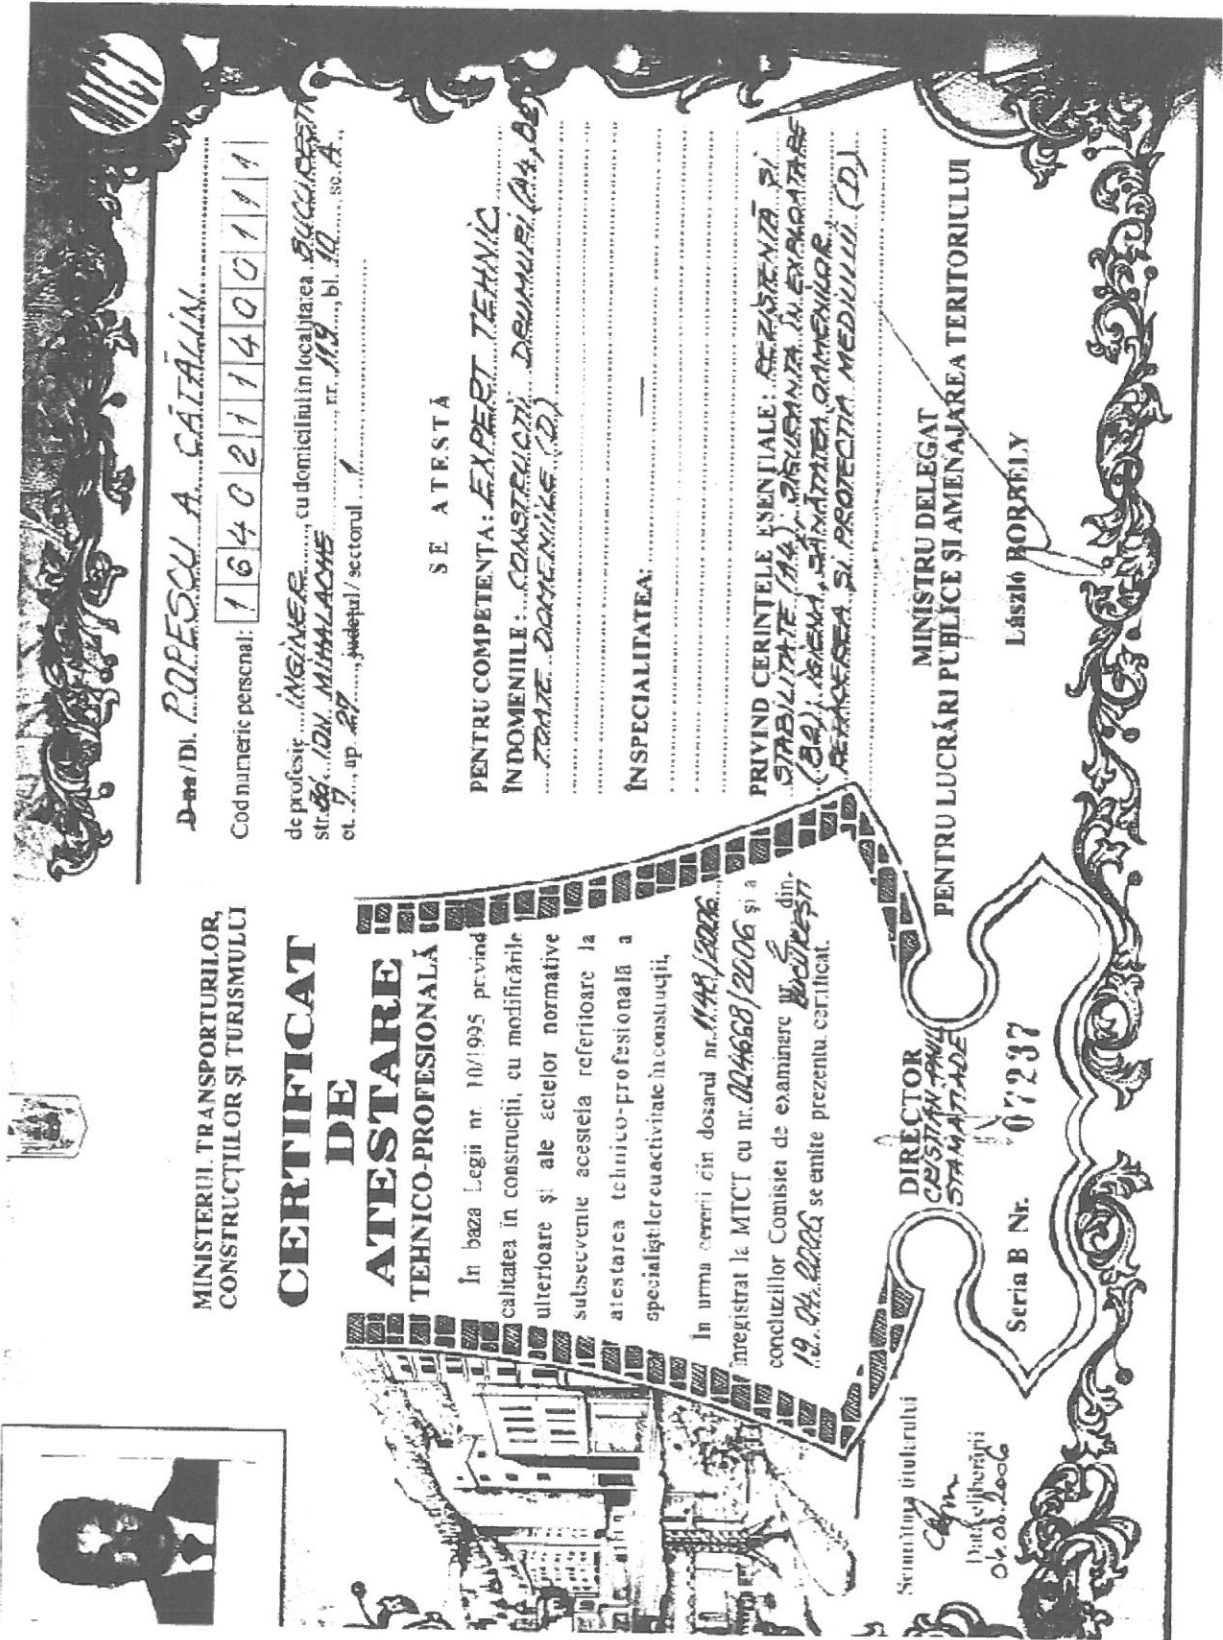 MINISTERUL TRANSPORTURILOR,
CONSTRUCȚIILOR ȘI TURISMULUI
CERTIFICAT
DE
ATESTARE
TEHNICO-PROFESIONALĂ
În baza Legii nr. 10/1995 privind
calitatea în construcții, cu modificările
ulterioare și ale actelor normative
subsecvente acesteia referitoare la
atestarea tehnico-profesională a
specialiștilor cu activitate în construcții,
În urma cererii din dosarul nr. 1148/2006
înregistrat la MTCT cu nr. 004668/2006 și a
concluziilor Comisiei de examinare nr. 5 din
BUCUREȘTI
19.04.2006, se emite prezentu. certificat.
DIRECTOR
CRISTIAN PAUL
STAMATIADE
Seria B Nr. 07237
Semnătura titularului
Data eliberării
04.08.2006
MTCT
Dna/Dl. POPESCU A. CĂTĂLIN
Cod numeric personal: 1640211400111
de profesie INGINER, cu domiciliul în localitatea BUCUREȘTI
str. Bd. ION MIHALACHE nr. 119, bl. 10, sc. A,
et. 7, ap. 27, județul/sectorul 1
SE ATESTĂ
PENTRU COMPETENȚA: EXPERT TEHNIC
ÎN DOMENIILE: CONSTRUCȚII DRUMURI (A4, B2)
TOATE DOMENIILE (D)
ÎN SPECIALITATEA: —
PRIVIND CERINȚELE ESENȚIALE: REZISTENȚĂ ȘI
STABILITATE (A4); SIGURANȚA ÎN EXPLOATARE
(B2); IGIENA, SĂNĂTATEA OAMENILOR,
REFACEREA ȘI PROTECȚIA MEDIULUI (D)
MINISTRU DELEGAT
PENTRU LUCRĂRI PUBLICE ȘI AMENAJAREA TERITORIULUI
László BORBELY